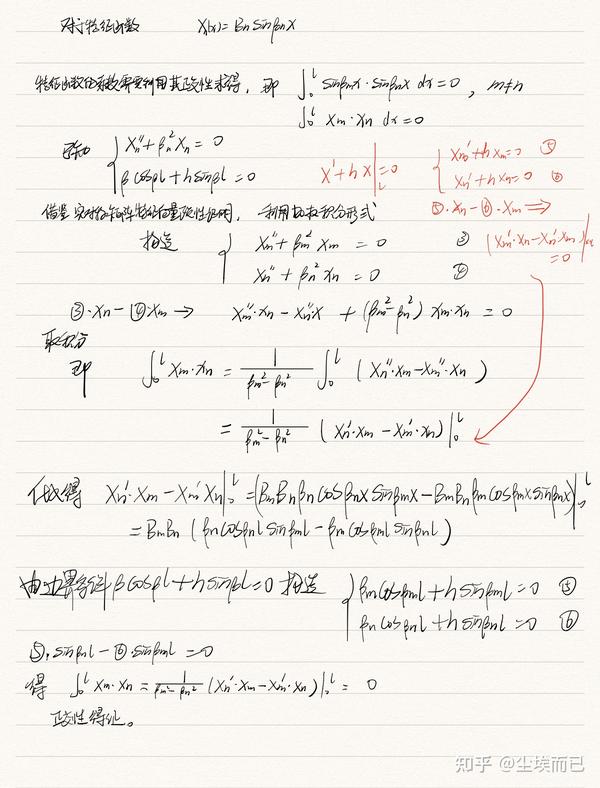 对于特征函数 X(x) = Bn sinβnx
特征函数的系数需要利用其正交性求得，即 ∫₀ᴸ sinβmx · sinβnx dx = 0 , m≠n
∫₀ᴸ Xm·Xn dx = 0
{ Xn'' + βn² Xn = 0
β cosβL + h sinβL = 0
X' + hX |L = 0
{ Xm' + h Xm = 0 ⑤
Xn' + h Xn = 0 ⑥
借鉴实对称矩阵特征向量正交性证明，利用 积分形式
⑤·Xn − ⑥·Xm ⇒
构造 { Xm'' + βm² Xm = 0 ③
Xn'' + βn² Xn = 0 ④
(Xm'·Xn − Xn'·Xm)
= 0
③·Xn − ④·Xm → Xm''·Xn − Xn''·X + (βm² − βn²) Xm·Xn = 0
取积分
即 ∫₀ᴸ Xm·Xn = 1/(βm² − βn²) ∫₀ᴸ (Xn''·Xm − Xm''·Xn)
= 1/(βm² − βn²) (Xn'·Xm − Xm'·Xn) |₀ᴸ
代入得 Xn'·Xm − Xm'Xn |₀ᴸ = (BmBnβn cosβnx sinβmx − BmBnβm cosβmx sinβnx) |₀ᴸ
= BmBn (βn cosβnL sinβmL − βm cosβmL sinβnL)
由边界条件 β cosβL + h sinβL = 0 构造 { βm cosβmL + h sinβmL = 0 ⑤
βn cosβnL + h sinβnL = 0 ⑥
⑤·sinβnL − ⑥·sinβmL = 0
得 ∫₀ᴸ Xm·Xn = 1/(βm² − βn²) (Xn'·Xm − Xm'·Xn) |₀ᴸ = 0
正交性得证。
知乎 @尘埃而已